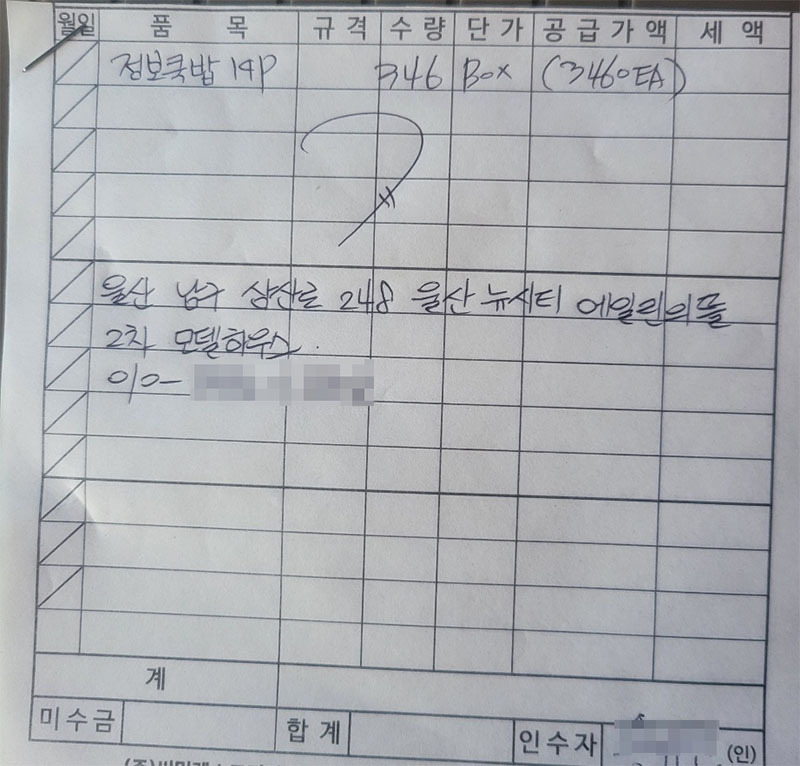 월일 품 목 규격 수량 단가 공급가액 세액
점보쿡밥 19P 346 Box (3460EA)
울산 남구 삼산로 248 울산뉴시티 에일린의뜰
2차 모델하우스.
010-
계
미수금 합계 인수자 (인)